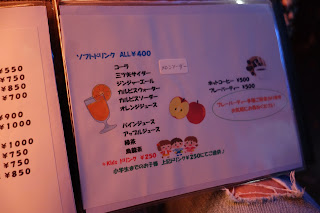 ¥550
¥850
¥700
¥900
¥1000
¥1000
¥750
¥750
¥850
ソフトドリンク ALL¥400
コーラ
三ツ矢サイダー
ジンジャーエール
カルピスウォーター
カルピスソーダー
オレンジジュース
パインジュース
アップルジュース
緑茶
烏龍茶
ホットコーヒー ¥500
フレーバーティー ¥500
Kids ドリンク ¥250
小学生までのお子様 上記ドリンク¥250にてご提供！